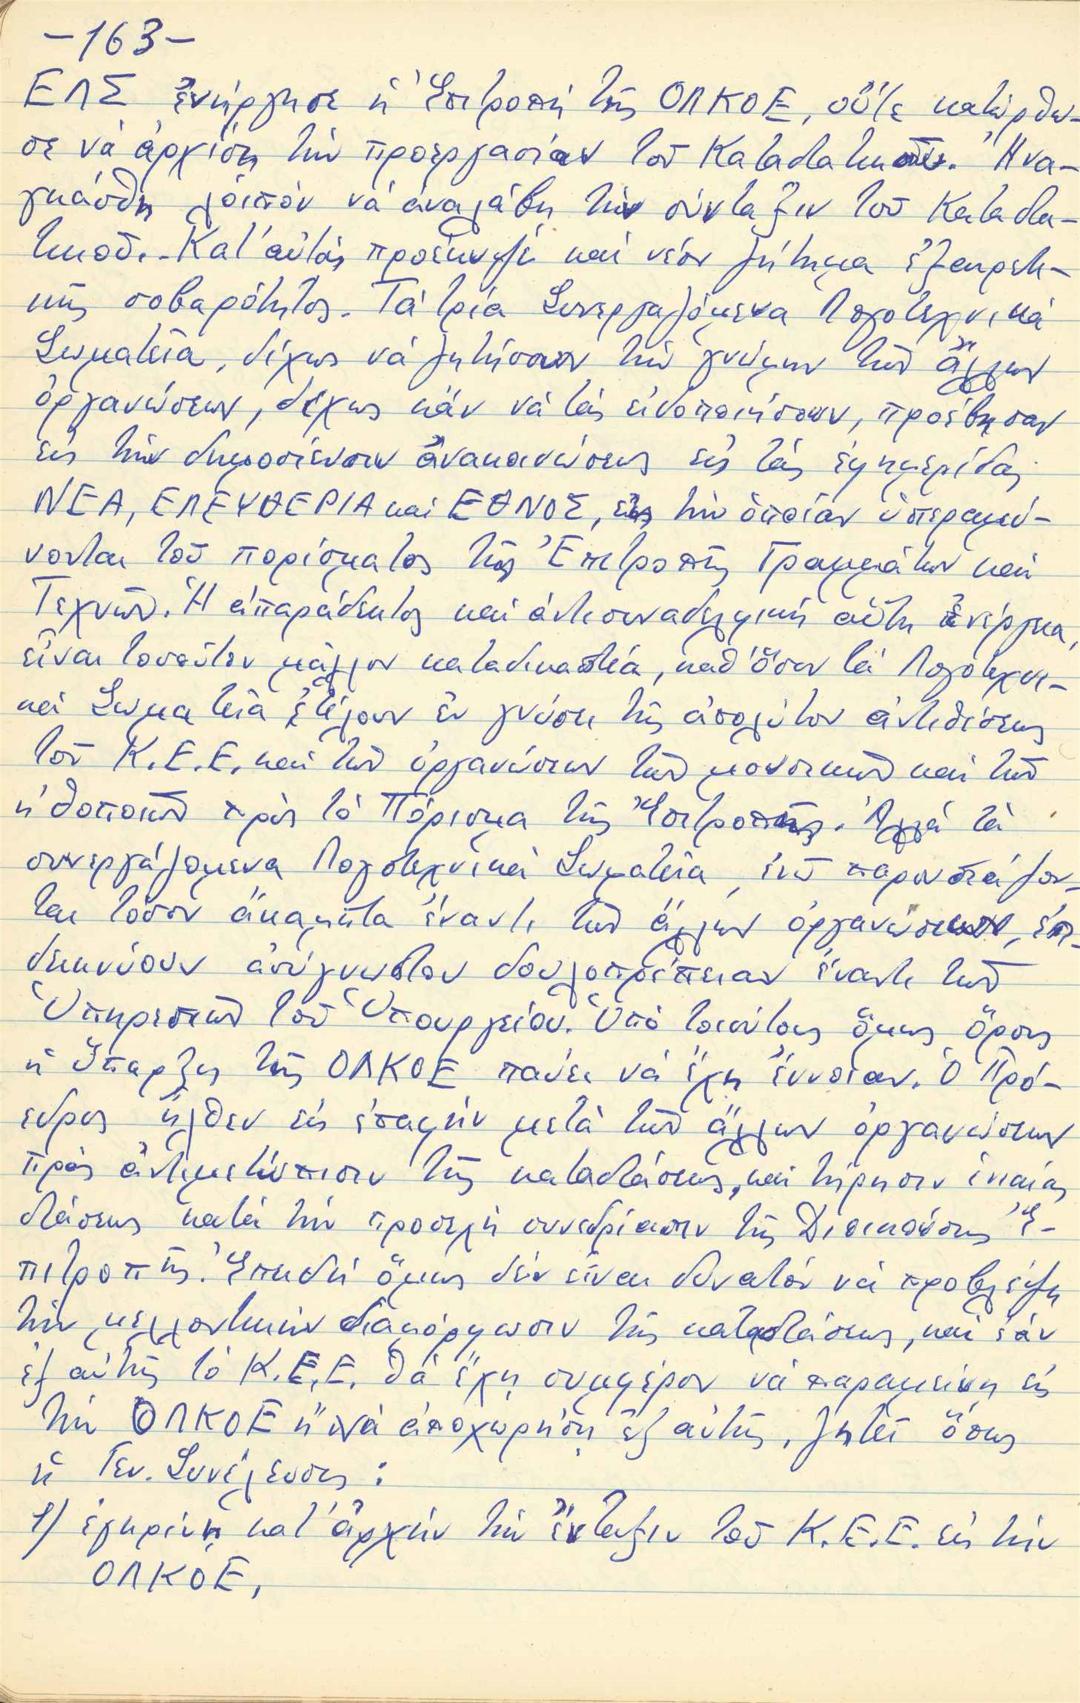 -163-
ΕΛΣ ἐνήργησε ἡ Ἐπιτροπή τῆς ΟΛΚΟΕ, οὔτε κατώρθω-
σε νά ἀρχίσῃ τήν προεργασίαν τοῦ Καταστατικοῦ. Ἠνα-
γκάσθη λοιπόν νά ἀναλάβῃ τήν σύνταξιν τοῦ Καταστα-
τικοῦ.- Κατ' αὐτάς προέκυψε καί νέον ζήτημα ἐξαιρετι-
κῆς σοβαρότητος. Τά τρία Συνεργαζόμενα Λογοτεχνικά
Σωματεῖα, δίχως νά ζητήσουν τήν γνώμην τῶν ἄλλων
ὀργανώσεων, δίχως κἄν νά τάς εἰδοποιήσουν, προέβησαν
εἰς τήν δημοσίευσιν ἀνακοινώσεως εἰς τάς ἐφημερίδας
ΝΕΑ, ΕΛΕΥΘΕΡΙΑ καί ΕΘΝΟΣ, εἰς τήν ὁποίαν ὑπεραμύ-
νονται τοῦ πορίσματος τῆς Ἐπιτροπῆς Γραμμάτων καί
Τεχνῶν. Ἡ ἀπαράδεκτος καί ἀντισυναδελφική αὕτη ἐνέργεια,
εἶναι τοσοῦτον μᾶλλον καταδικαστέα, καθ' ὅσον τά Λογοτεχνι-
κά Σωματεῖα ἐτέλουν ἐν γνώσει τῆς ἀπολύτου ἀντιθέσεως
τοῦ Κ.Ε.Ε. καί τῶν ὀργανώσεων τῶν μουσικῶν καί τῶν
ἠθοποιῶν πρός τό Πόρισμα τῆς Ἐπιτροπῆς. Ἀλλά τά
συνεργαζόμενα Λογοτεχνικά Σωματεῖα, ἐνῶ παρουσιάζον-
ται τόσον ἄκαμπτα ἔναντι τῶν ἄλλων ὀργανώσεων, ἐπι-
δεικνύουν ἀσύγνωστον δουλοπρέπειαν ἔναντι τῶν
Ὑπηρεσιῶν τοῦ Ὑπουργείου. Ὑπό τοιούτους ὅμως ὅρους
ἡ ὕπαρξις τῆς ΟΛΚΟΕ παύει νά ἔχῃ ἔννοιαν. Ὁ Πρό-
εδρος ἦλθεν εἰς ἐπαφήν μετά τῶν ἄλλων ὀργανώσεων
πρός ἀντιμετώπισιν τῆς καταστάσεως, καί τήρησιν ἑνιαίας
στάσεως κατά τήν προσεχῆ συνεδρίασιν τῆς Διοικούσης Ἐ-
πιτροπῆς. Ἐπειδή ὅμως δέν εἶναι δυνατόν νά προβλέψῃ
τήν μελλοντικήν διαμόρφωσιν τῆς καταστάσεως, καί ἐάν
ἐξ αὐτῆς τό Κ.Ε.Ε. θά ἔχῃ συμφέρον νά παραμείνῃ εἰς
τήν ΟΛΚΟΕ ἤ νά ἀποχωρήσῃ ἐξ αὐτῆς, ζητεῖ ὅπως
ἡ Γεν. Συνέλευσις:
1) ἐγκρίνῃ κατ' ἀρχήν τήν ἔνταξιν τοῦ Κ.Ε.Ε. εἰς τήν
ΟΛΚΟΕ,